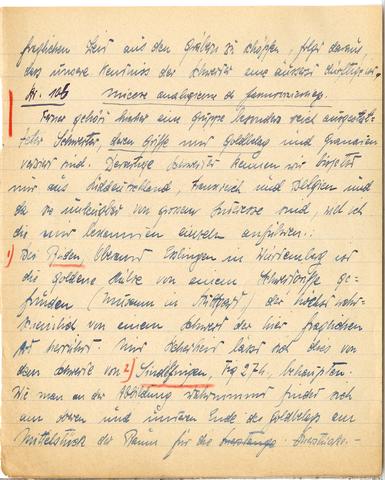 fraglichen Zeit aus den Gräbern zu schöpfen, folgt daraus,
dass unsere Kenntnis der Schwerter eine äusserst
Ferner gehört hierher eine Gruppe besonders reich ausgestat-
teter Schwerter, deren Griffe mit Goldbelag und Granaten
verziert sind. Derartige Schwerter kennen wir bisher
nur aus Süddeutschland, Frankreich und Belgien und
da sie unleugbar von grossem Interesse sind, will ich
die mir bekannten einzeln anführen:
1) Bei Rüdern, Oberamt Esslingen in Württemberg ist
die goldene Hülse von einem Schwertgriffe ge-
funden (Museum in Stuttgart) der höchst wahr-
scheinlich von einem Schwert der hier fraglichen
Art herrührt. Mit Sicherheit lässt sich dies von
dem Schwerte von 2) Sindlfingen, Fig 274, behaupten.
Wie man an der Abbildung wahrnimmt findet sich
am oberen und unteren Ende des Goldbelags am
Mittelstück der Raum für die